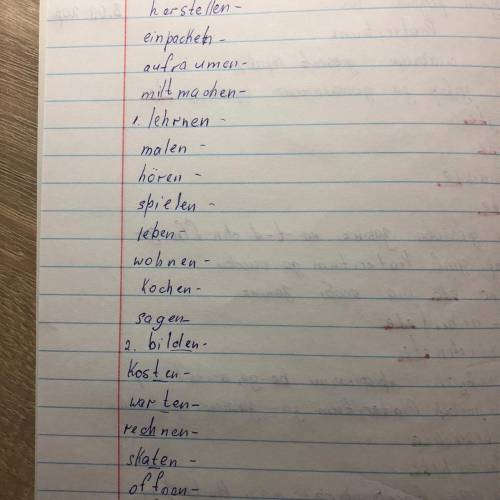 herstellen-
einpacken-
aufräumen-
mitmachen-
1. lehrnen-
malen-
hören-
spielen-
leben-
wohnen-
kochen-
sagen-
2. bilden-
kosten-
warten-
rechnen-
skaten-
öffnen-